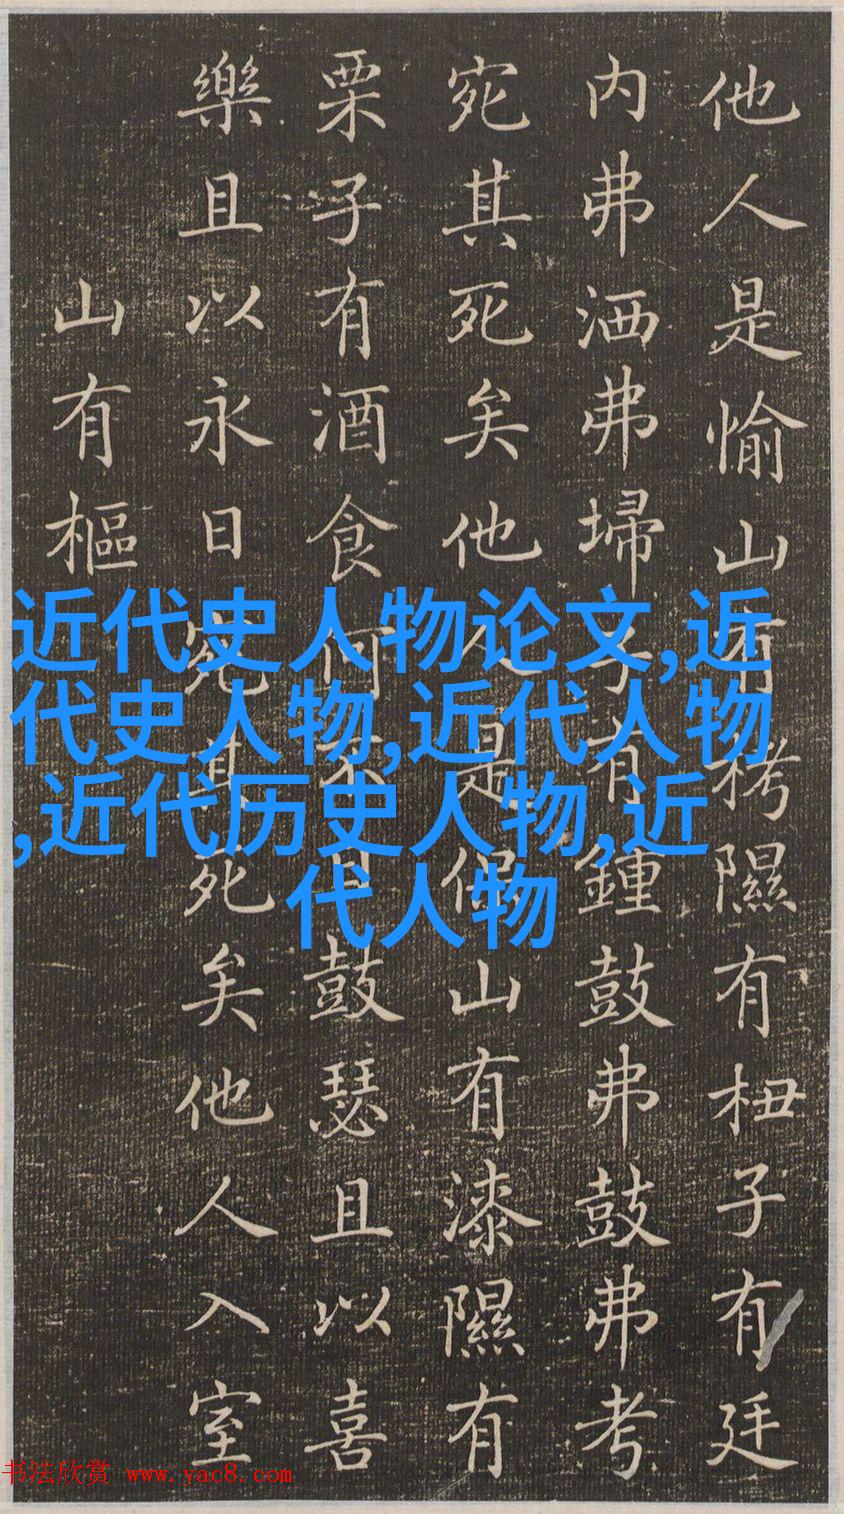 他人是愉山有栲隰有杻子有廷
内弗洒弗埽子有鍾鼓弗鼓弗考
宛其死矣他人是保山有漆隰有
栗子有酒食何不日鼓瑟且以喜
樂且以永日宛其死矣他人入室
山有樞
近代史人物论文,近
代史人物,近代人物
,近代历史人物,近
代人物
书法欣赏 www.yac8.com